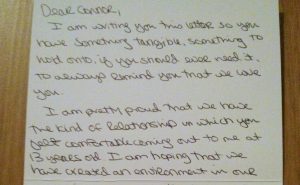 Dear Connor,
I am writing you this letter so you
have something tangible, something to
hold onto, if you should ever need it,
to always remind you that we love
you.
I am pretty proud that we have
the kind of relationship in which you
felt comfortable coming out to me at
13 years old. I am hoping that we
have created an environment in our